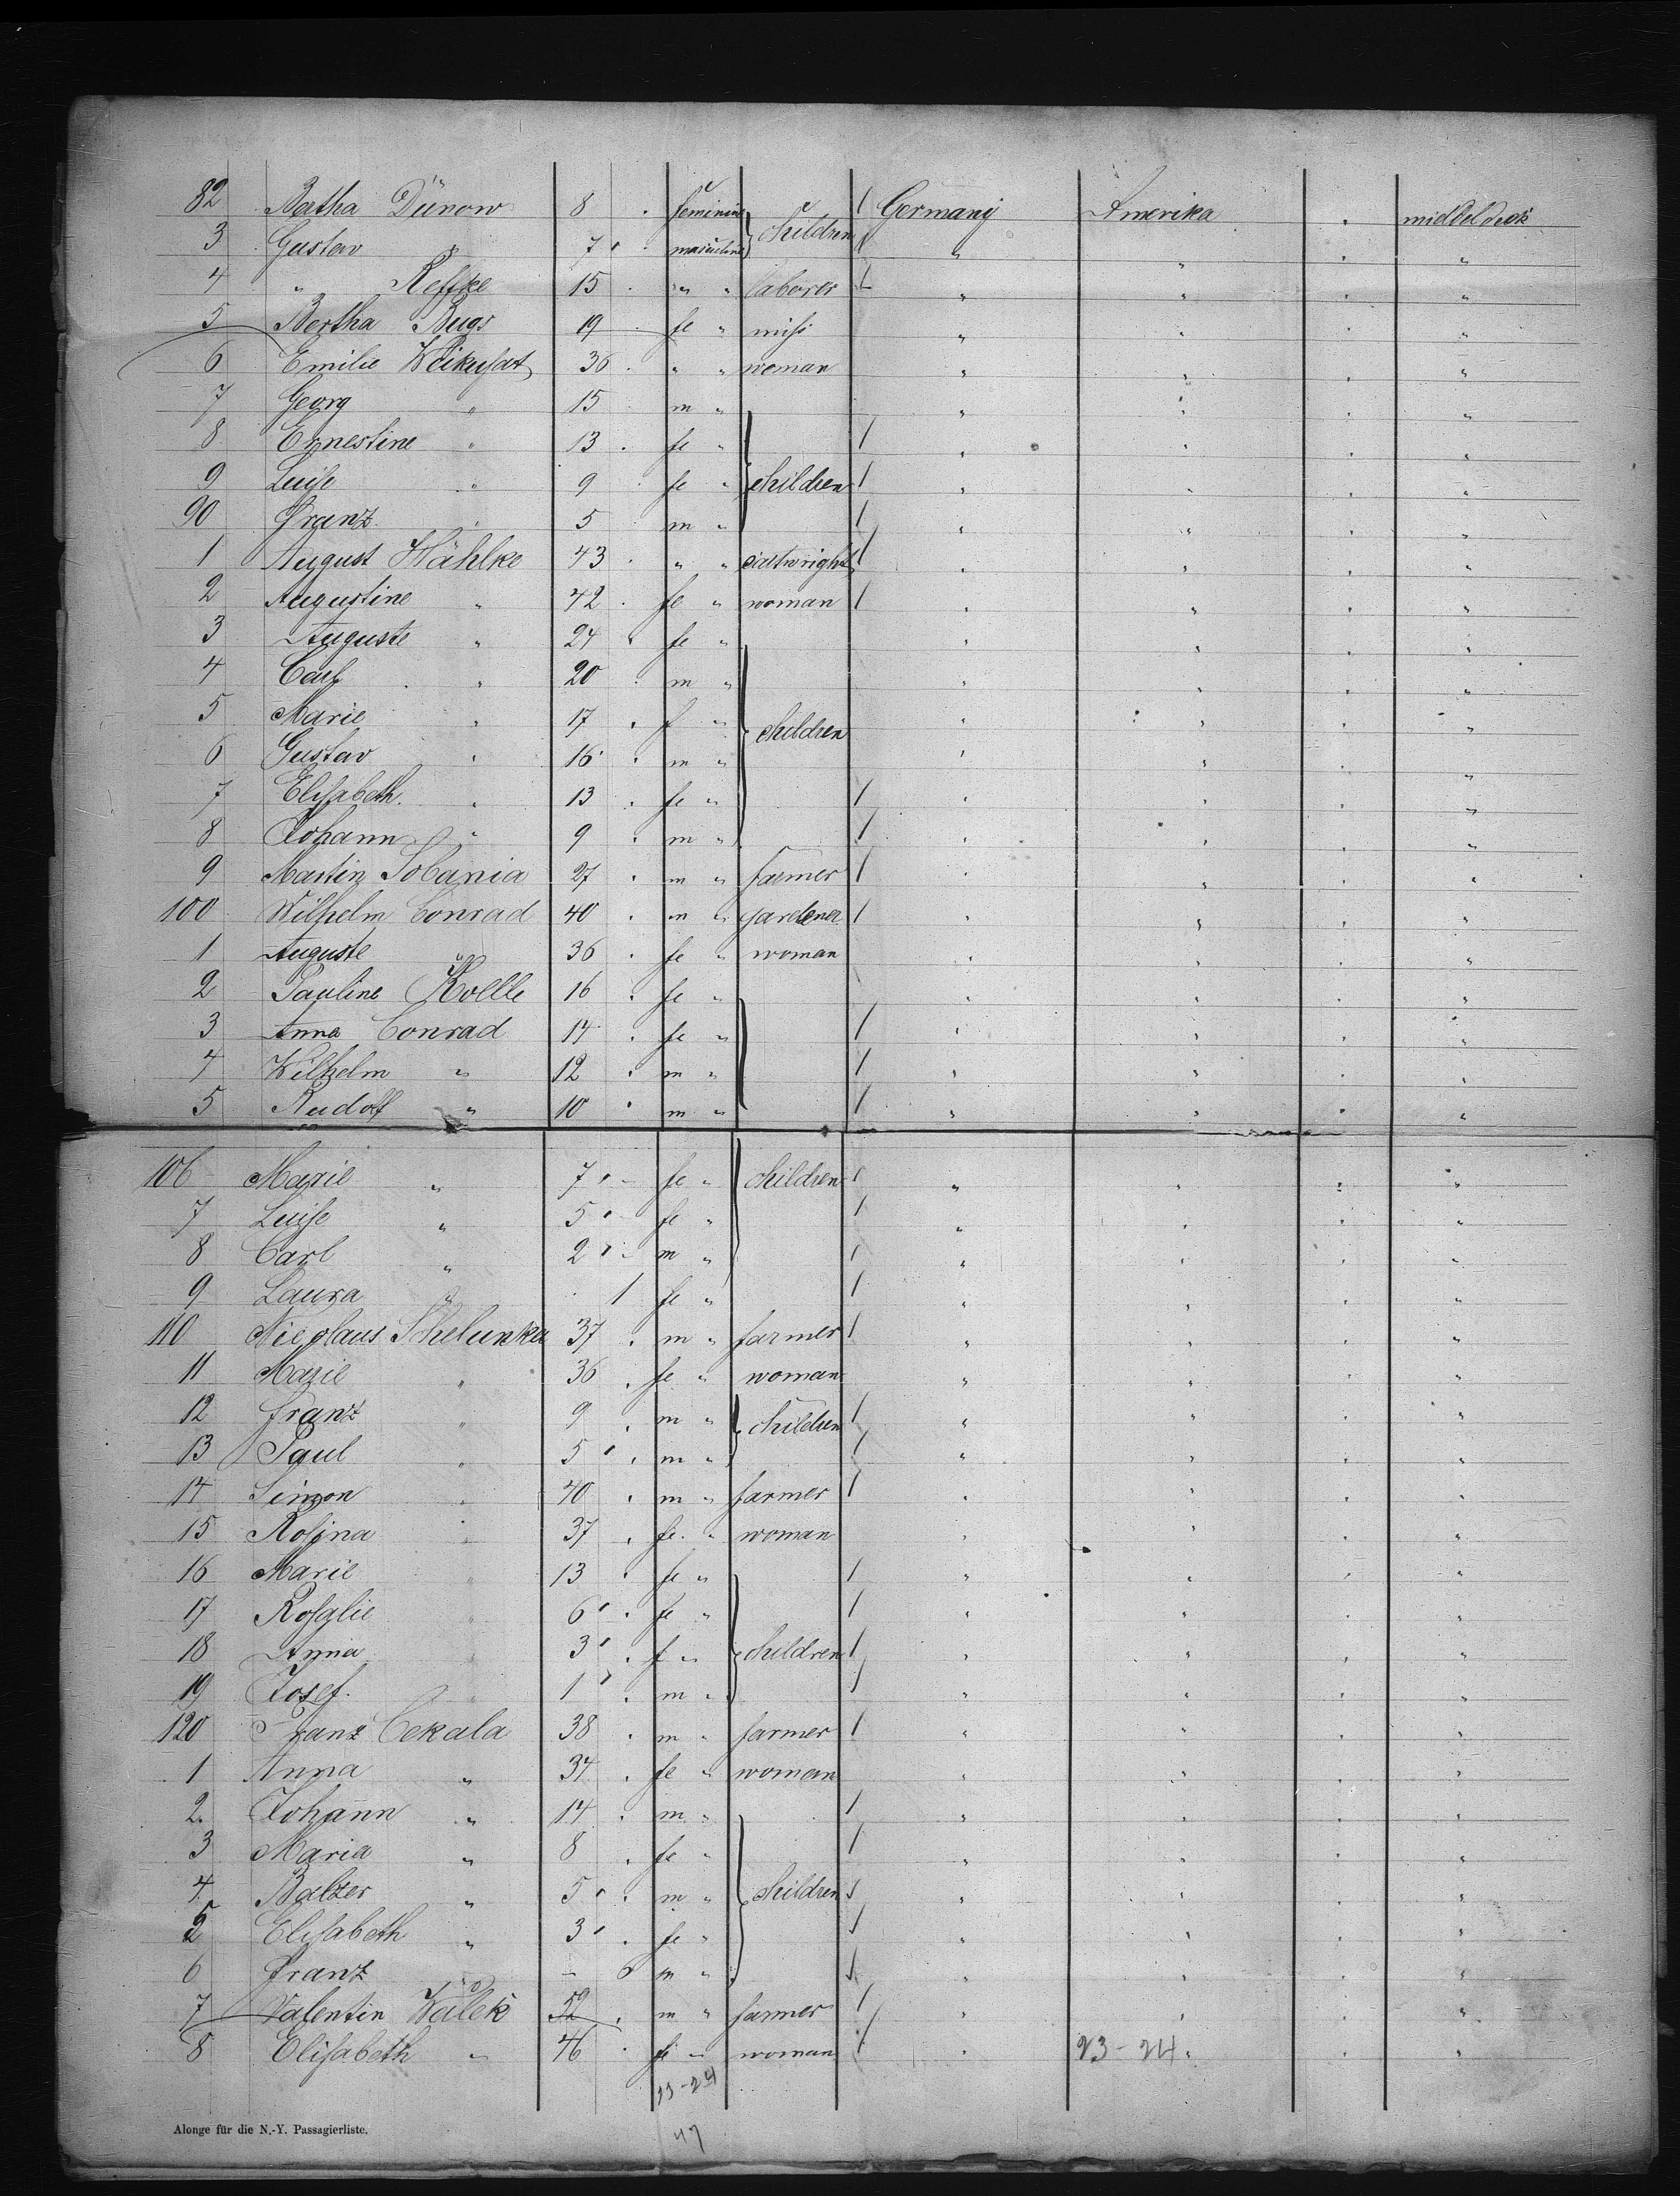 82 Bertha Dünow 8 feminine children Germany Amerika middeldeck
3 Gustav 7 masculine " " "
4 " Reffke 15 " " laborer " " "
5 Bertha Bugs 19 fe " miss " " "
6 Emilie Weikusat 36 " " woman " " "
7 Georg " 15 m " " " "
8 Ernestine " 13 fe " " " "
9 Luise " 9 fe " children " " "
90 Franz " 5 m " " " "
1 August Hählke 43 " " " " "
2 Augustine " 42 fe " woman " " "
3 Auguste " 24 fe " " " "
4 Carl " 20 m " " " "
5 Marie " 17 f " children " " "
6 Gustav " 16 m " " " "
7 Elisabeth " 13 fe " " " "
8 Johann " 9 m " " " "
9 Martin Sobania 27 m " farmer " " "
100 Wilhelm Conrad 40 m " gardener " " "
1 Auguste " 36 fe " woman " " "
2 Pauline Kolle 16 fe " " " "
3 Anna Conrad 14 fe " " " "
4 Wilhelm " 12 m " " " "
5 Rudolf " 10 m " " " "
106 Marie " 7 fe " children " " "
7 Luise " 5 fe " " " "
8 Carl " 2 m " " " "
9 Laura " 1 fe " " " "
110 Nicolaus 37 m " farmer " " "
11 Marie " 36 fe " woman " " "
12 Franz " 9 m " children " " "
13 Paul " 5 m " " " "
14 Simon " 40 m " farmer " " "
15 Rosina " 37 fe " woman " " "
16 Marie " 13 fe " " " "
17 Rosalie " 6 fe " " " "
18 Anna " 3 f " children " " "
19 Josef " 1 m " " " "
120 Franz Cekala 38 m " farmer " " "
1 Anna " 34 fe " woman " " "
2 Johann " 14 m " " " "
3 Maria " 8 fe " " " "
4 Balzer " 5 m " children " " "
5 Elisabeth " 3 fe " " " "
6 Franz " - 6 m " " " "
7 Valentin Walek 52 m " farmer " " "
8 Elisabeth " 46 fe " woman " 23-24 " "
23-24
47
Alonge für die N.-Y. Passagierliste.